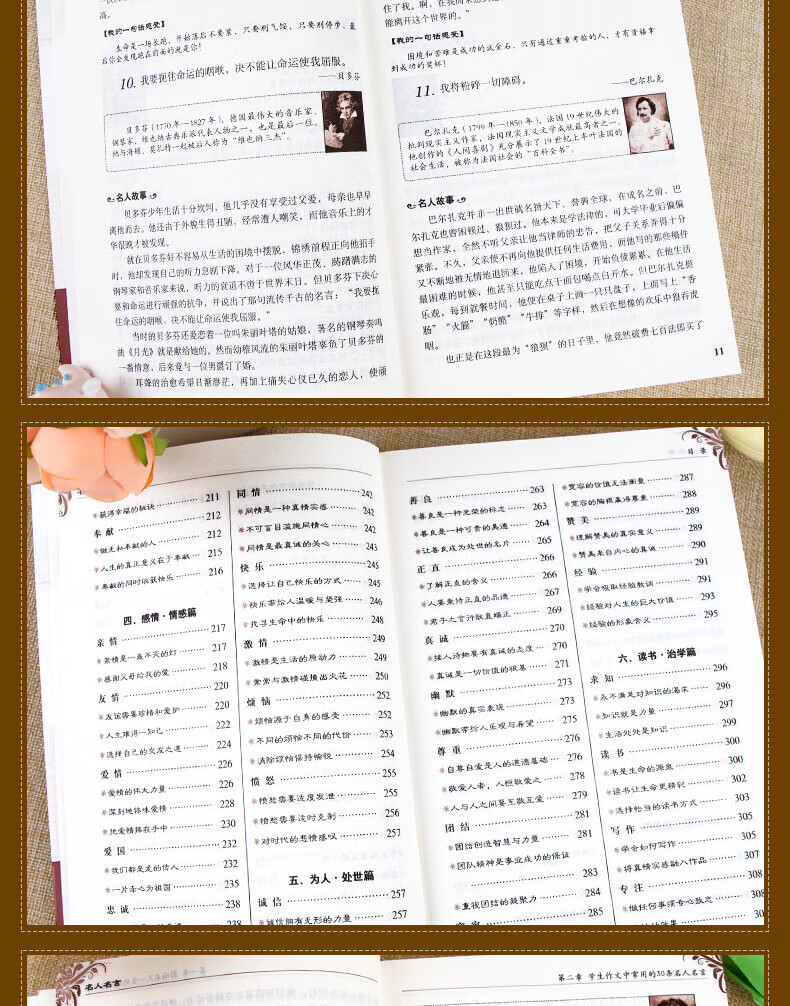 高。
【我的一句话感受】
生命是一场长跑，开始落后不要紧，只要别气馁，只要别停步，最
后你会发现跑在前面的就是你！
10. 我要扼住命运的咽喉，决不能让命运使我屈服。
——贝多芬
贝多芬（1770 年—1827 年），德国最伟大的音乐家、
钢琴家，维也纳古典乐派代表人物之一，也是最后一位。
他与海顿、莫扎特一起被后人称为“维也纳三杰”。
名人故事
贝多芬少年生活十分坎坷，他几乎没有享受过父爱，母亲也早早
离他而去。他还由于外貌生得丑陋，经常遭人嘲笑，而他音乐上的才
华很晚才被发现。
就在贝多芬好不容易从生活的困境中摆脱，锦绣前程正向他招手
时，他却发现自己的听力急剧下降。对于一位风华正茂、踌躇满志的
钢琴家和音乐家来说，听力的衰退不啻于世界末日。但贝多芬下决心
要和命运进行顽强的抗争，并说出了那句流传千古的名言：“我要扼
住命运的咽喉，决不能让命运使我屈服。”
当时的贝多芬还爱恋着一位叫朱丽叶塔的姑娘，著名的钢琴奏鸣
曲《月光》就是献给她的。然而幼稚风流的朱丽叶塔辜负了贝多芬的
一番情意，后来竟与一位男爵订了婚。
耳聋的治愈希望日渐渺茫，再加上痛失心仪已久的恋人，使顽
能离开这个世界的。”
【我的一句话感受】
困境和苦难是成功的试金石，只有通过重重考验的人，才有资格拿
到成功的奖杯！
11. 我将粉碎一切障碍。
——巴尔扎克
巴尔扎克（1799 年—1850 年），法国 19 世纪伟大的
批判现实主义作家，法国现实主义文学成就最高者之一。
他创作的《人间喜剧》充分展示了 19 世纪上半叶法国的
社会生活，被称为法国社会的“百科全书”。
名人故事
巴尔扎克并非一出世就名扬天下、誉满全球，在成名之前，巴
尔扎克也曾困顿过、狼狈过。他本来是学法律的，可大学毕业后偏偏
想当作家，全然不听父亲让他当律师的忠告，把父子关系弄得十分
紧张。不久，父亲便不再向他提供任何生活费用，而他写的那些稿件
又不断地被无情地退回来，他陷入了困境，开始负债累累。在他生活
最困难的时候，他甚至只能吃点干面包喝点白开水。但巴尔扎克挺
乐观，每到就餐时间，他便在桌子上画一只只盘子，上面写上“香
肠”“火腿”“奶酪”“牛排”等字样，然后在想像的欢乐中狼吞虎
咽。
也正是在这段最为“狼狈”的日子里，他竟然破费七百法郎买了
11
获得幸福的秘诀 211
奉献 212
做无私奉献的人 212
人生的真正意义在于奉献 215
奉献的同时收获快乐 216
四、感情·情感篇
亲情 217
亲情是一盏不灭的灯 217
感谢父母给我的爱 218
友情 220
友谊需要珍惜和爱护 220
人生难得一知己 222
选择自己的交友之道 224
爱情 226
爱情的伟大力量 226
深刻地体味爱情 228
把爱情握在手中 230
爱国 232
我们都是龙的传人 232
一片赤心为祖国 235
忠诚 238
同情 242
同情是一种真情实感 242
不可盲目滥施同情心 242
同情是最真诚的关心 243
快乐 245
选择让自己快乐的方式 245
快乐带给人温暖与坚强 246
找寻生命中的快乐 248
激情 249
激情是生活的原动力 249
常常与激情碰撞出火花 250
烦恼 252
烦恼源于自身的感受 252
不同的烦恼不同的代价 253
消除烦恼保持愉悦 254
愤怒 255
愤怒需要适度发泄 255
愤怒需要适时克制 256
对时代的悲愤感叹 257
五、为人·处世篇
诚信 257
诚信拥有无形的力量 257
目录
善良 263
善良是一种光荣的标志 263
善良是一种可贵的美德 264
让善良成为处世的名片 265
正直 266
了解正直的含义 266
人要秉持正直的品德 267
君子之言行耿直端正 269
真诚 270
接人待物要有真诚的态度 270
真诚是一切价值的根基 271
幽默 273
幽默的真实表现 273
幽默带给人乐观与希望 275
尊重 276
自尊自爱是人的道德基础 276
敬爱人者，人恒敬爱之 278
人与人之间要互敬互爱 279
团结 281
团结创造智慧与力量 281
团队精神是事业成功的保证
283
重视团结的凝聚力 284
285
宽容的价值无法衡量 287
宽容的胸襟赢得尊重 288
赞美 289
理解赞美的真实意义 289
赞美来自内心的真诚 290
经验 291
学会吸取经验教训 291
经验对人生的巨大价值 293
经验的形象含义 295
六、读书·治学篇
求知 296
永不满足对知识的渴求 296
知识就是力量 297
生活处处是知识 299
读书 300
书是生命的源泉 300
读书让生命更精彩 302
选择恰当的读书方式 303
写作 305
学会如何写作 305
将真情实感融入作品 307
专注 308
做任何事须专心致志 308
名人名言
第二章 学生作文中常用的30条名人名言